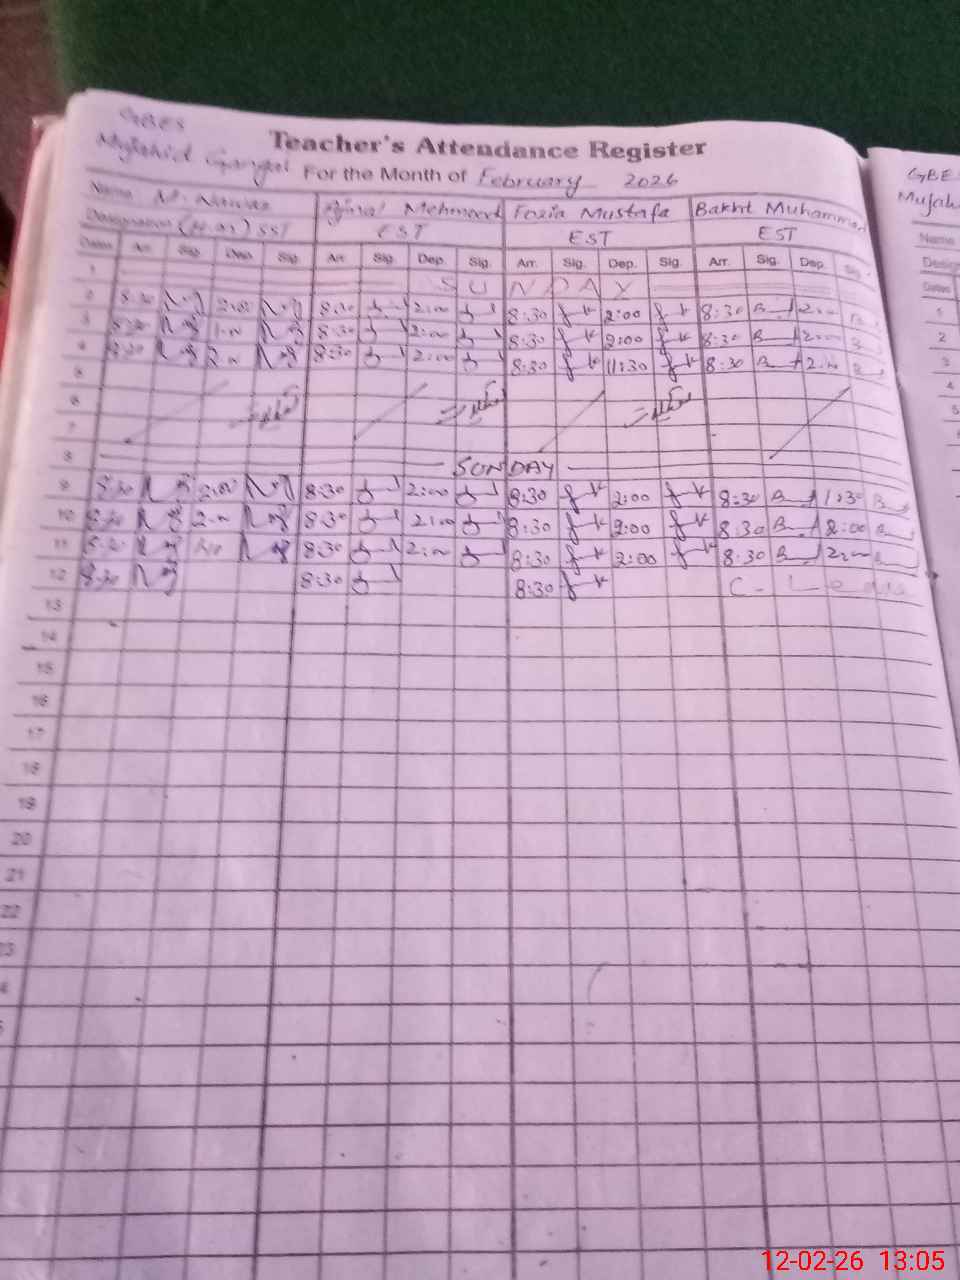 GBES
Mujahid Gangal
Teacher's Attendance Register
For the Month of February 2026
Name M. Nawaz Ajmal Mehmood Fozia Mustafa Bakht Muhammad
Designation (H.M) SST EST EST EST
Dates Arr. Sig. Dep. Sig. Arr. Sig. Dep. Sig. Arr. Sig. Dep. Sig. Arr. Sig. Dep. Sig.
1 SUNDAY
2 8:30 2:00 8:30 2:00 8:30 2:00 8:30 2:00
3 8:30 8:30 2:00 8:30 2:00 8:30 2:00
4 8:30 2:00 8:30 2:00 8:30 11:30 8:30 2:00
5
6
7
8 SUNDAY
9 8:30 2:00 8:30 2:00 8:30 2:00 8:30 1:30
10 8:30 2:00 8:30 2:00 8:30 2:00 8:30 2:00
11 8:30 8:30 2:00 8:30 2:00 8:30 2:00
12 8:30 8:30 8:30 C- Leave
13
14
15
16
17
18
19
20
21
22
23
4
5
GBE
Mujah
Name
Desig
Dates
1
2
3
4
5
6
12-02-26 13:05